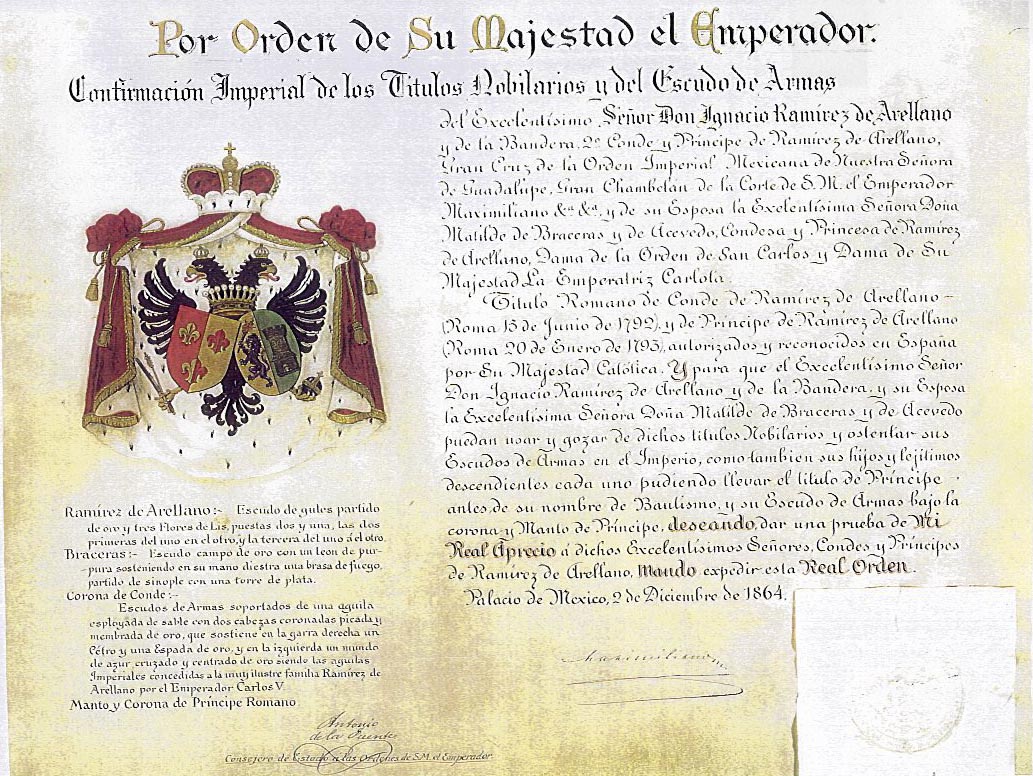 Por Orden de Su Majestad el Emperador.
Confirmación Imperial de los Titulos Nobilarios y del Escudo de Armas
del Excelentísimo Señor Don Ignacio Ramírez de Arellano
y de la Bandera, 2º Conde y Príncipe de Ramírez de Arellano,
Gran Cruz de la Orden Imperial Mexicana de Nuestra Señora
de Guadalupe, Gran Chambelán de la Corte de S. M. el Emperador
Maximiliano &ª &ª, y de su Esposa la Exelentísima Señora Doña
Matilde de Braceras y de Acevedo, Condesa y Princesa de Ramírez
de Arellano, Dama de la Orden de San Carlos y Dama de Su
Majestad La Emperatriz Carlota.
Titulo Romano de Conde de Ramírez de Arellano -
(Roma 15 de Junio de 1792), y de Príncipe de Ramírez de Arellano
(Roma 20 de Enero de 1795), autorizados y reconocidos en España
por Su Majestad Católica. Y para que el Excelentísimo Señor
Don Ignacio Ramírez de Arellano y de la Bandera, y su Esposa
la Excelentísima Señora Doña Matilde de Braceras y de Acevedo
puedan usar y gozar de dichos titulos Nobilarios y ostentar sus
Escudos de Armas en el Imperio, como tambien sus hijos y lejitimos
descendientes cada uno pudiendo llevar el titulo de Príncipe
antes de su nombre de Bautismo, y su Escudo de Armas bajo la
corona y Manto de Príncipe, deseando dar una prueba de Mi
Real Aprecio á dichos Excelentísimos Señores, Condes y Príncipes
de Ramírez de Arellano, Mando expedir esta Real Orden.
Palacio de Mexico, 2 de Diciembre de 1864.
Maximiliano
Ramírez de Arellano:- Escudo de gules partido
de oro y tres Flores de Lis, puestas dos y una, las dos
primeras del uno en el otro, y la tercera del uno á el otro.
Braceras:- Escudo campo de oro con un leon de pur-
pura sosteniendo en su mano diestra una brasa de fuego,
partido de sinople con una torre de plata.
Corona de Conde:-
Escudos de Armas soportados de una aguila
esployada de sable con dos cabezas coronadas picada y
membrada de oro, que sostiene en la garra derecha un
Cétro y una Espada de oro, y en la izquierda un mundo
de azur cruzado y centrado de oro siendo las aguilas
Imperiales concedidas a la muy ilustre familia Ramírez de
Arellano por el Emperador Carlos V.
Manto y Corona de Príncipe Romano
Antonio
de la Puente
Consejero de Estado a las Ordenes de S.M. el Emperador.